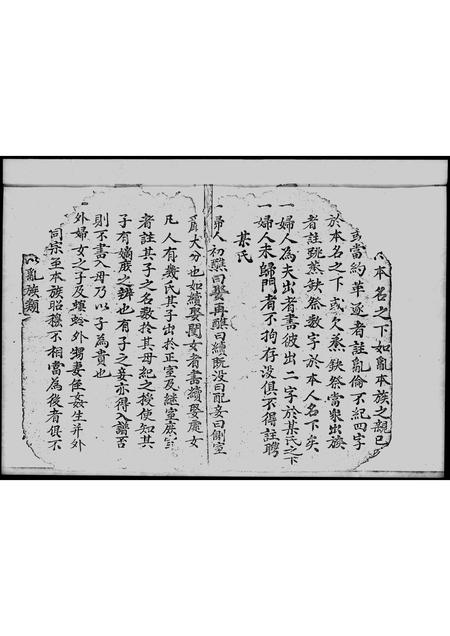 本名之下如亂本族之親已
當約革逐者註亂倫不紀四字
於本名之下或久蒸缺祭當眾出族
者註跳蒸缺祭数字於本人名下矣
一婦人為夫出者書彼出二字於某氏之下
一婦人未歸門者不拘存没俱不得註聘
某氏
一婦人初醮曰娶再醮曰續既没曰配妾曰側室
大分也如續娶閨女者書續娶處女
凡人有幾氏其子出於正室及継室庶室
者註其子之名数於其母紀之後使知其
子有嫡庶之辨也有子之妾亦得入譜否
則不書入母乃以子為貴也
外婦女之子及螟蛉外甥妻侄姦生并外
同宗並本族昭穆不相當為後者俱不
亂族類